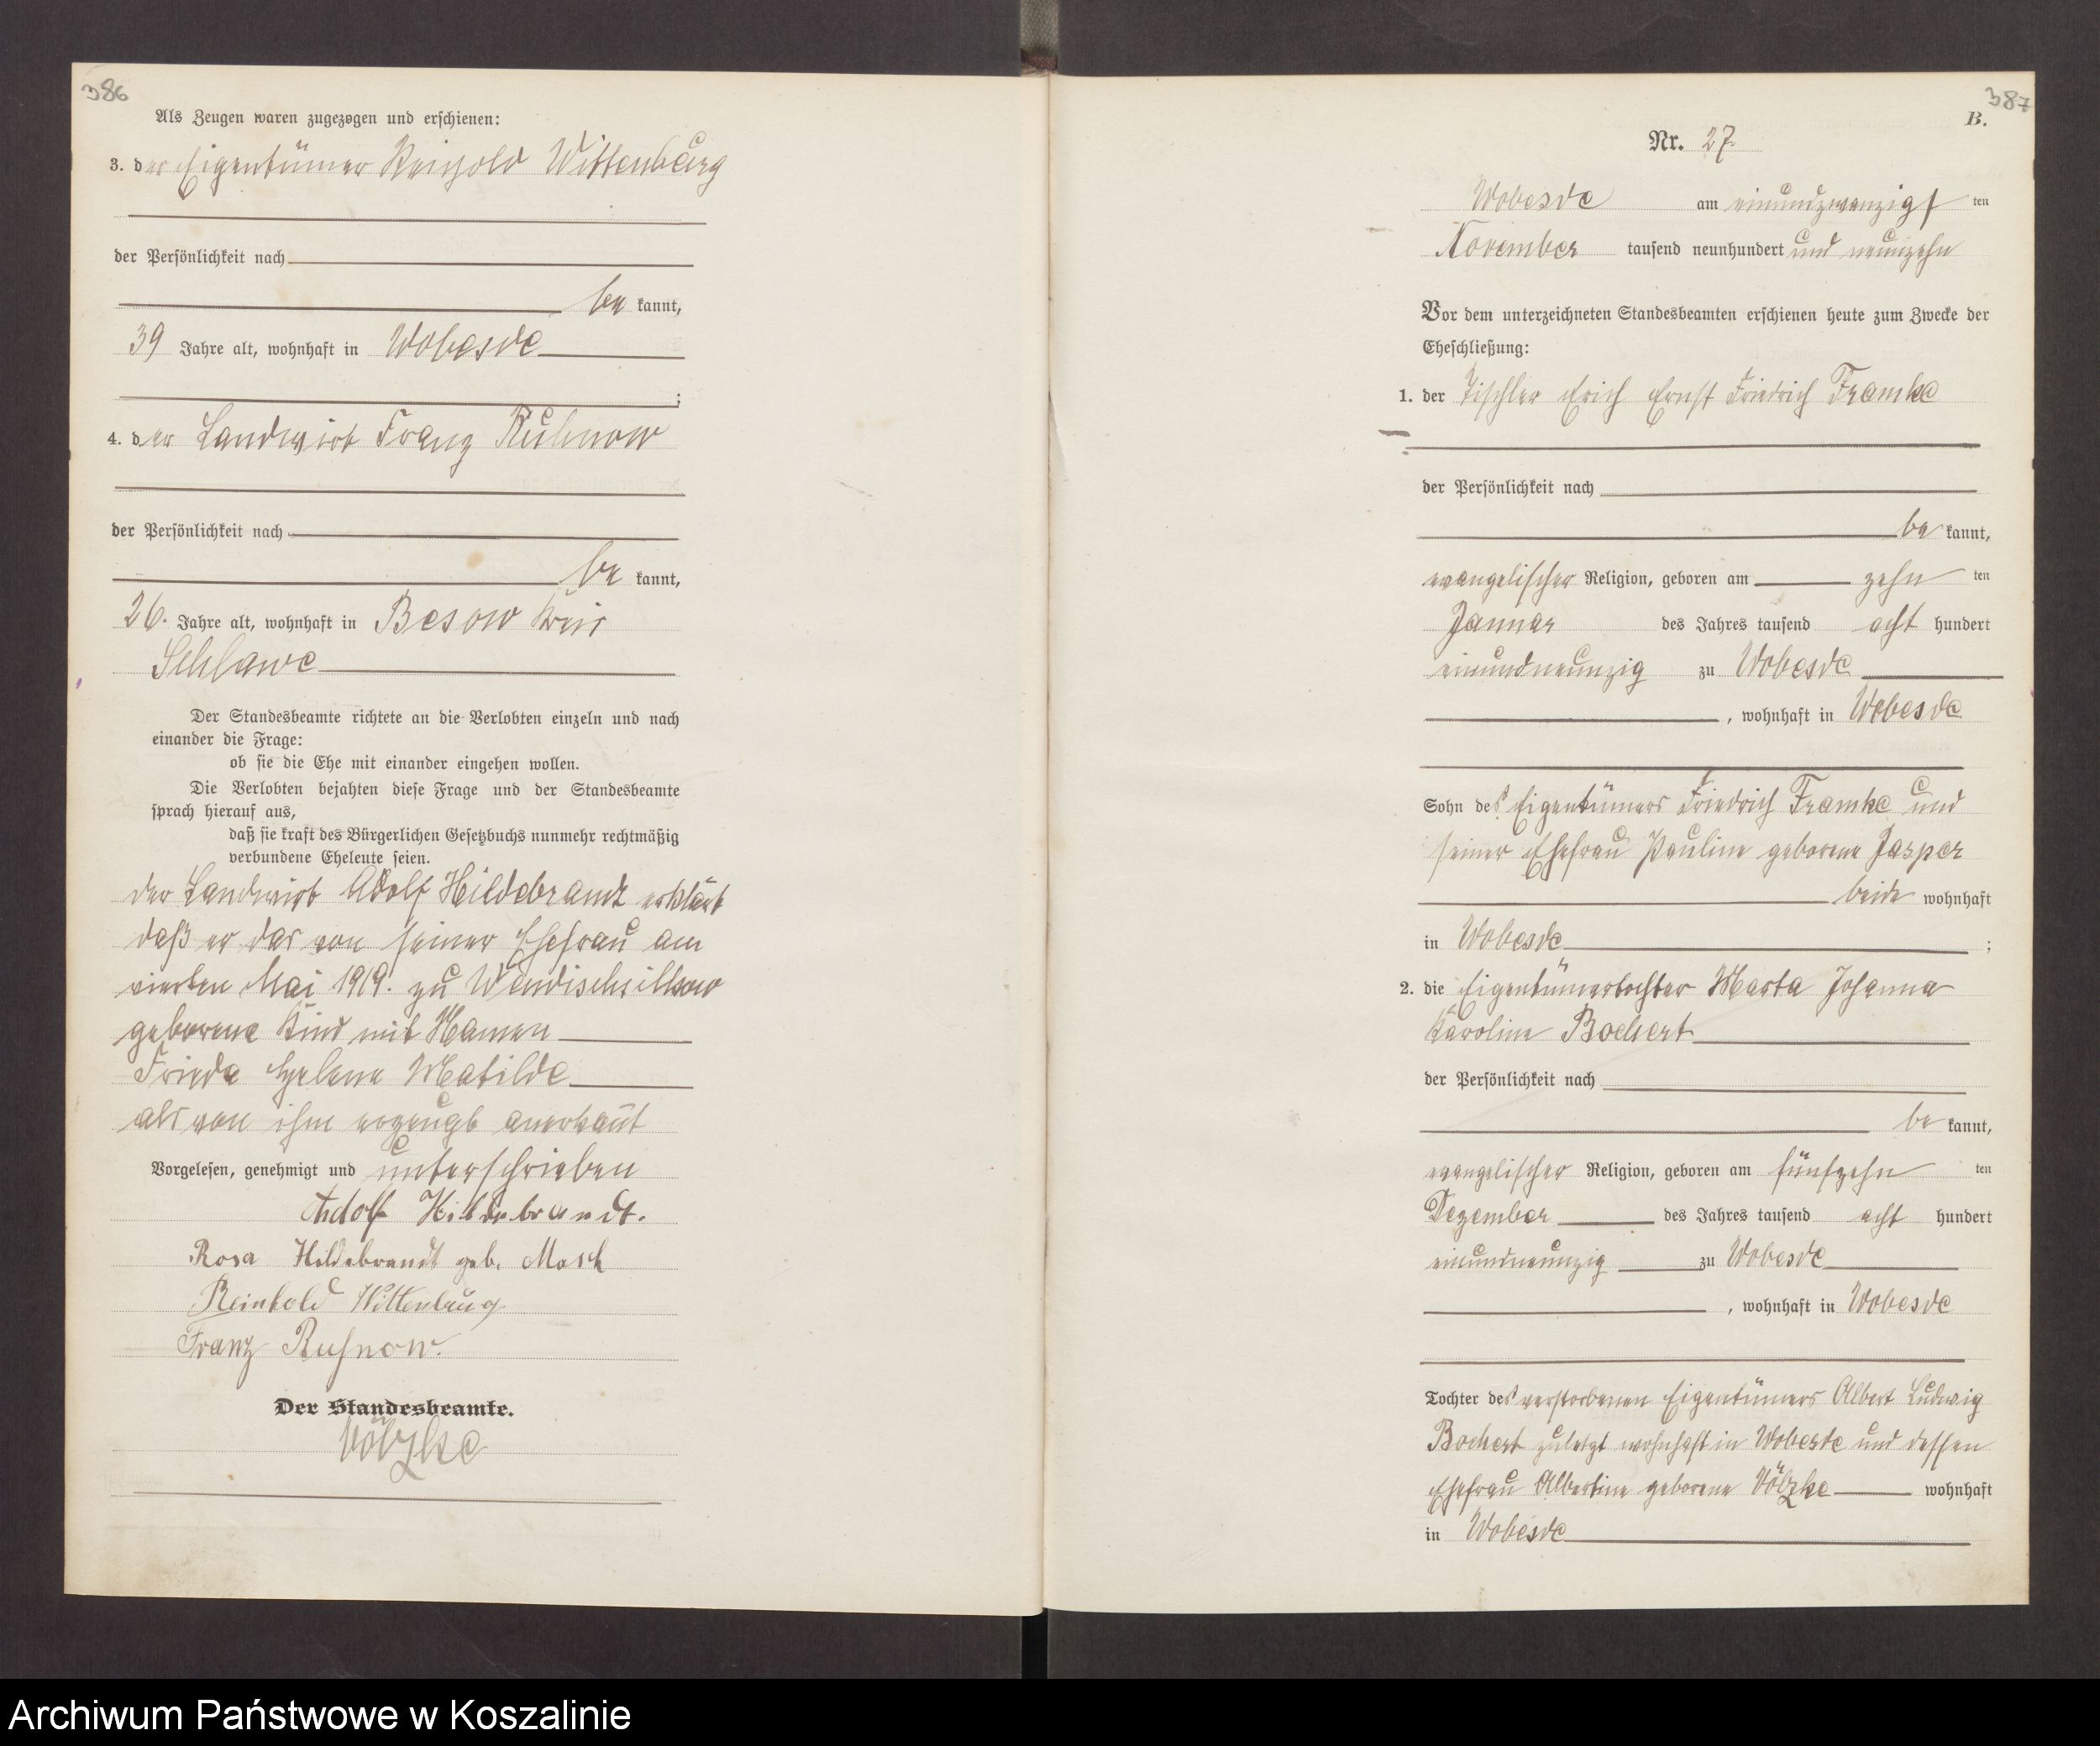 386
Als Zeugen waren zugezogen und erschienen:
3. der Eigentümer Reinhold Wittenburg
der Persönlichkeit nach
be kannt,
39 Jahre alt, wohnhaft in Wobesde
;
4. der Landwirt Franz Ruhnow
der Persönlichkeit nach
be kannt,
26. Jahre alt, wohnhaft in Besow Kreis
Schlawe
Der Standesbeamte richtete an die Verlobten einzeln und nach
einander die Frage:
ob sie die Ehe mit einander eingehen wollen.
Die Verlobten bejahten diese Frage und der Standesbeamte
sprach hierauf aus,
daß sie kraft des Bürgerlichen Gesetzbuchs nunmehr rechtmäßig
verbundene Eheleute seien.
der Landwirt Adolf Hildebrandt erklärt
daß er das von seiner Ehefrau am
vierten Mai 1919. zu
geborene Kind mit Namen
Frieda Helene Matilde
als von ihm erzeugt anerkannt
Vorgelesen, genehmigt und unterschrieben
Adolf Hildebrandt.
Rosa Hildebrandt geb. Masch
Reinhold Wittenburg
Franz Ruhnow.
Der Standesbeamte.
Völzke
387
B.
Nr. 27
Wobesde am einundzwanzigsten
November tausend neunhundert und neunzehn
Vor dem unterzeichneten Standesbeamten erschienen heute zum Zwecke der
Eheschließung:
1. der Tischler Erich Ernst Friedrich Framke
der Persönlichkeit nach
be kannt,
evangelischer Religion, geboren am zehn ten
Januar des Jahres tausend acht hundert
einundneunzig zu Wobesde
, wohnhaft in Wobesde
Sohn des Eigentümers Friedrich Framke und
seiner Ehefrau Pauline geborene Jasper
beide wohnhaft
in Wobesde ;
2. die Eigentümertochter Marta Johanna
Karoline Bochert
der Persönlichkeit nach
be kannt,
evangelischer Religion, geboren am fünfzehn ten
Dezember des Jahres tausend acht hundert
einundneunzig zu Wobesde
, wohnhaft in Wobesde
Tochter des verstorbenen Eigentümers Albert Ludwig
Bochert zuletzt wohnhaft in Wobesde und dessen
Ehefrau Albertine geborene Völzke wohnhaft
in Wobesde
Archiwum Państwowe w Koszalinie